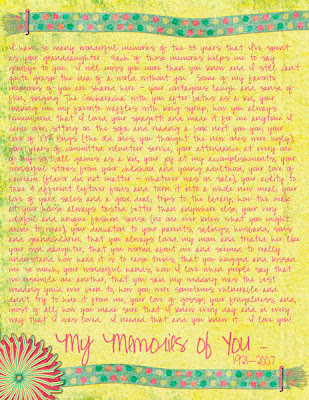 I have so many wonderful memories of the 33 years that I've spent
as your granddaughter. Each of those memories helps me to say
goodbye to you. I will miss you more than you know and I still can't
quite grasp the idea of a world without you. Some of my favorite
memories of you are shared here - your contagious laugh and sense of
fun, singing The Cucharacha with you after baths as a kid, your
making me my favorite waffles with king syrup, how you always
remembered that I loved your spagetti and made it for me anytime I
came over, sitting at the and reading a book next you, you your
love of TV (the old ones, you thought the new ones were ),
your years of committed volunteer service, your attendance at every one
of my softball games as a kid, your joy at my accomplishments, your
wonderful stories from your childhood and young adulthood, your love of
certain (flavor did not matter - whatever was on sale), your ability to
take 4 different leftover and turn it into a whole new meal, your
love of yard sales and a good deal, trips to the library, how the milk
at your house always tasted better than anywhere else, your very
colorful and unique fashion sense (no one ever knew what you might
show up ), your dedication to your parents, siblings, husband, sons
and grandchildren, that you always loved my mom and treated her like
your own daughter, that you worried about me and seemed to really
understand how hard it is to raise twins, that you hugged and kissed
me so much, your wonderful hands, how I love when people say that
we resemble one another, that you said my wedding was the best
wedding you'd ever been to, how you were sometimes vulnerable and
didn't try to hide it from me, your love of gossip, your frugalness, and,
most of all, how you made sure that I knew every day and in every
way that I was loved. I needed that and you knew it. I love you!
My Memories of You ...
1921-2007